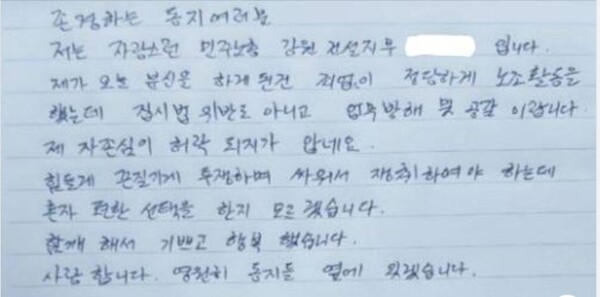 존경하는 동지여러분
저는 자랑스런 민주노총 강원 건설지부 입니다.
제가 오늘 분신을 하게 된건 죄없이 정당하게 노조활동을
했는데 집시법 위반도 아니고 업무방해 및 공갈 이랍니다.
제 자존심이 허락 되지가 않네요.
힘들게 끈질기게 투쟁하며 싸워서 쟁취하여야 하는데
혼자 편한 선택을 한지 모르겠습니다.
함께 해서 기쁘고 행복 했습니다.
사랑 합니다. 영원히 동지들 옆에 있겠습니다.